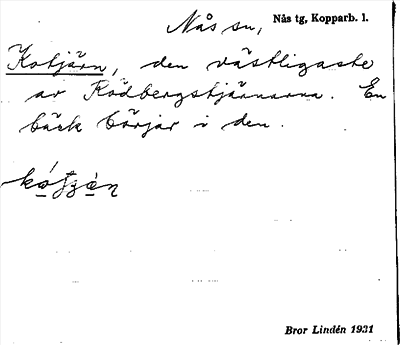 Nås sn, Nås tg, Kopparb. l.
Kotjärn, den västligaste
av Rödbergstjärnarna. En
bäck börjar i den.
Bror Lindén 1931